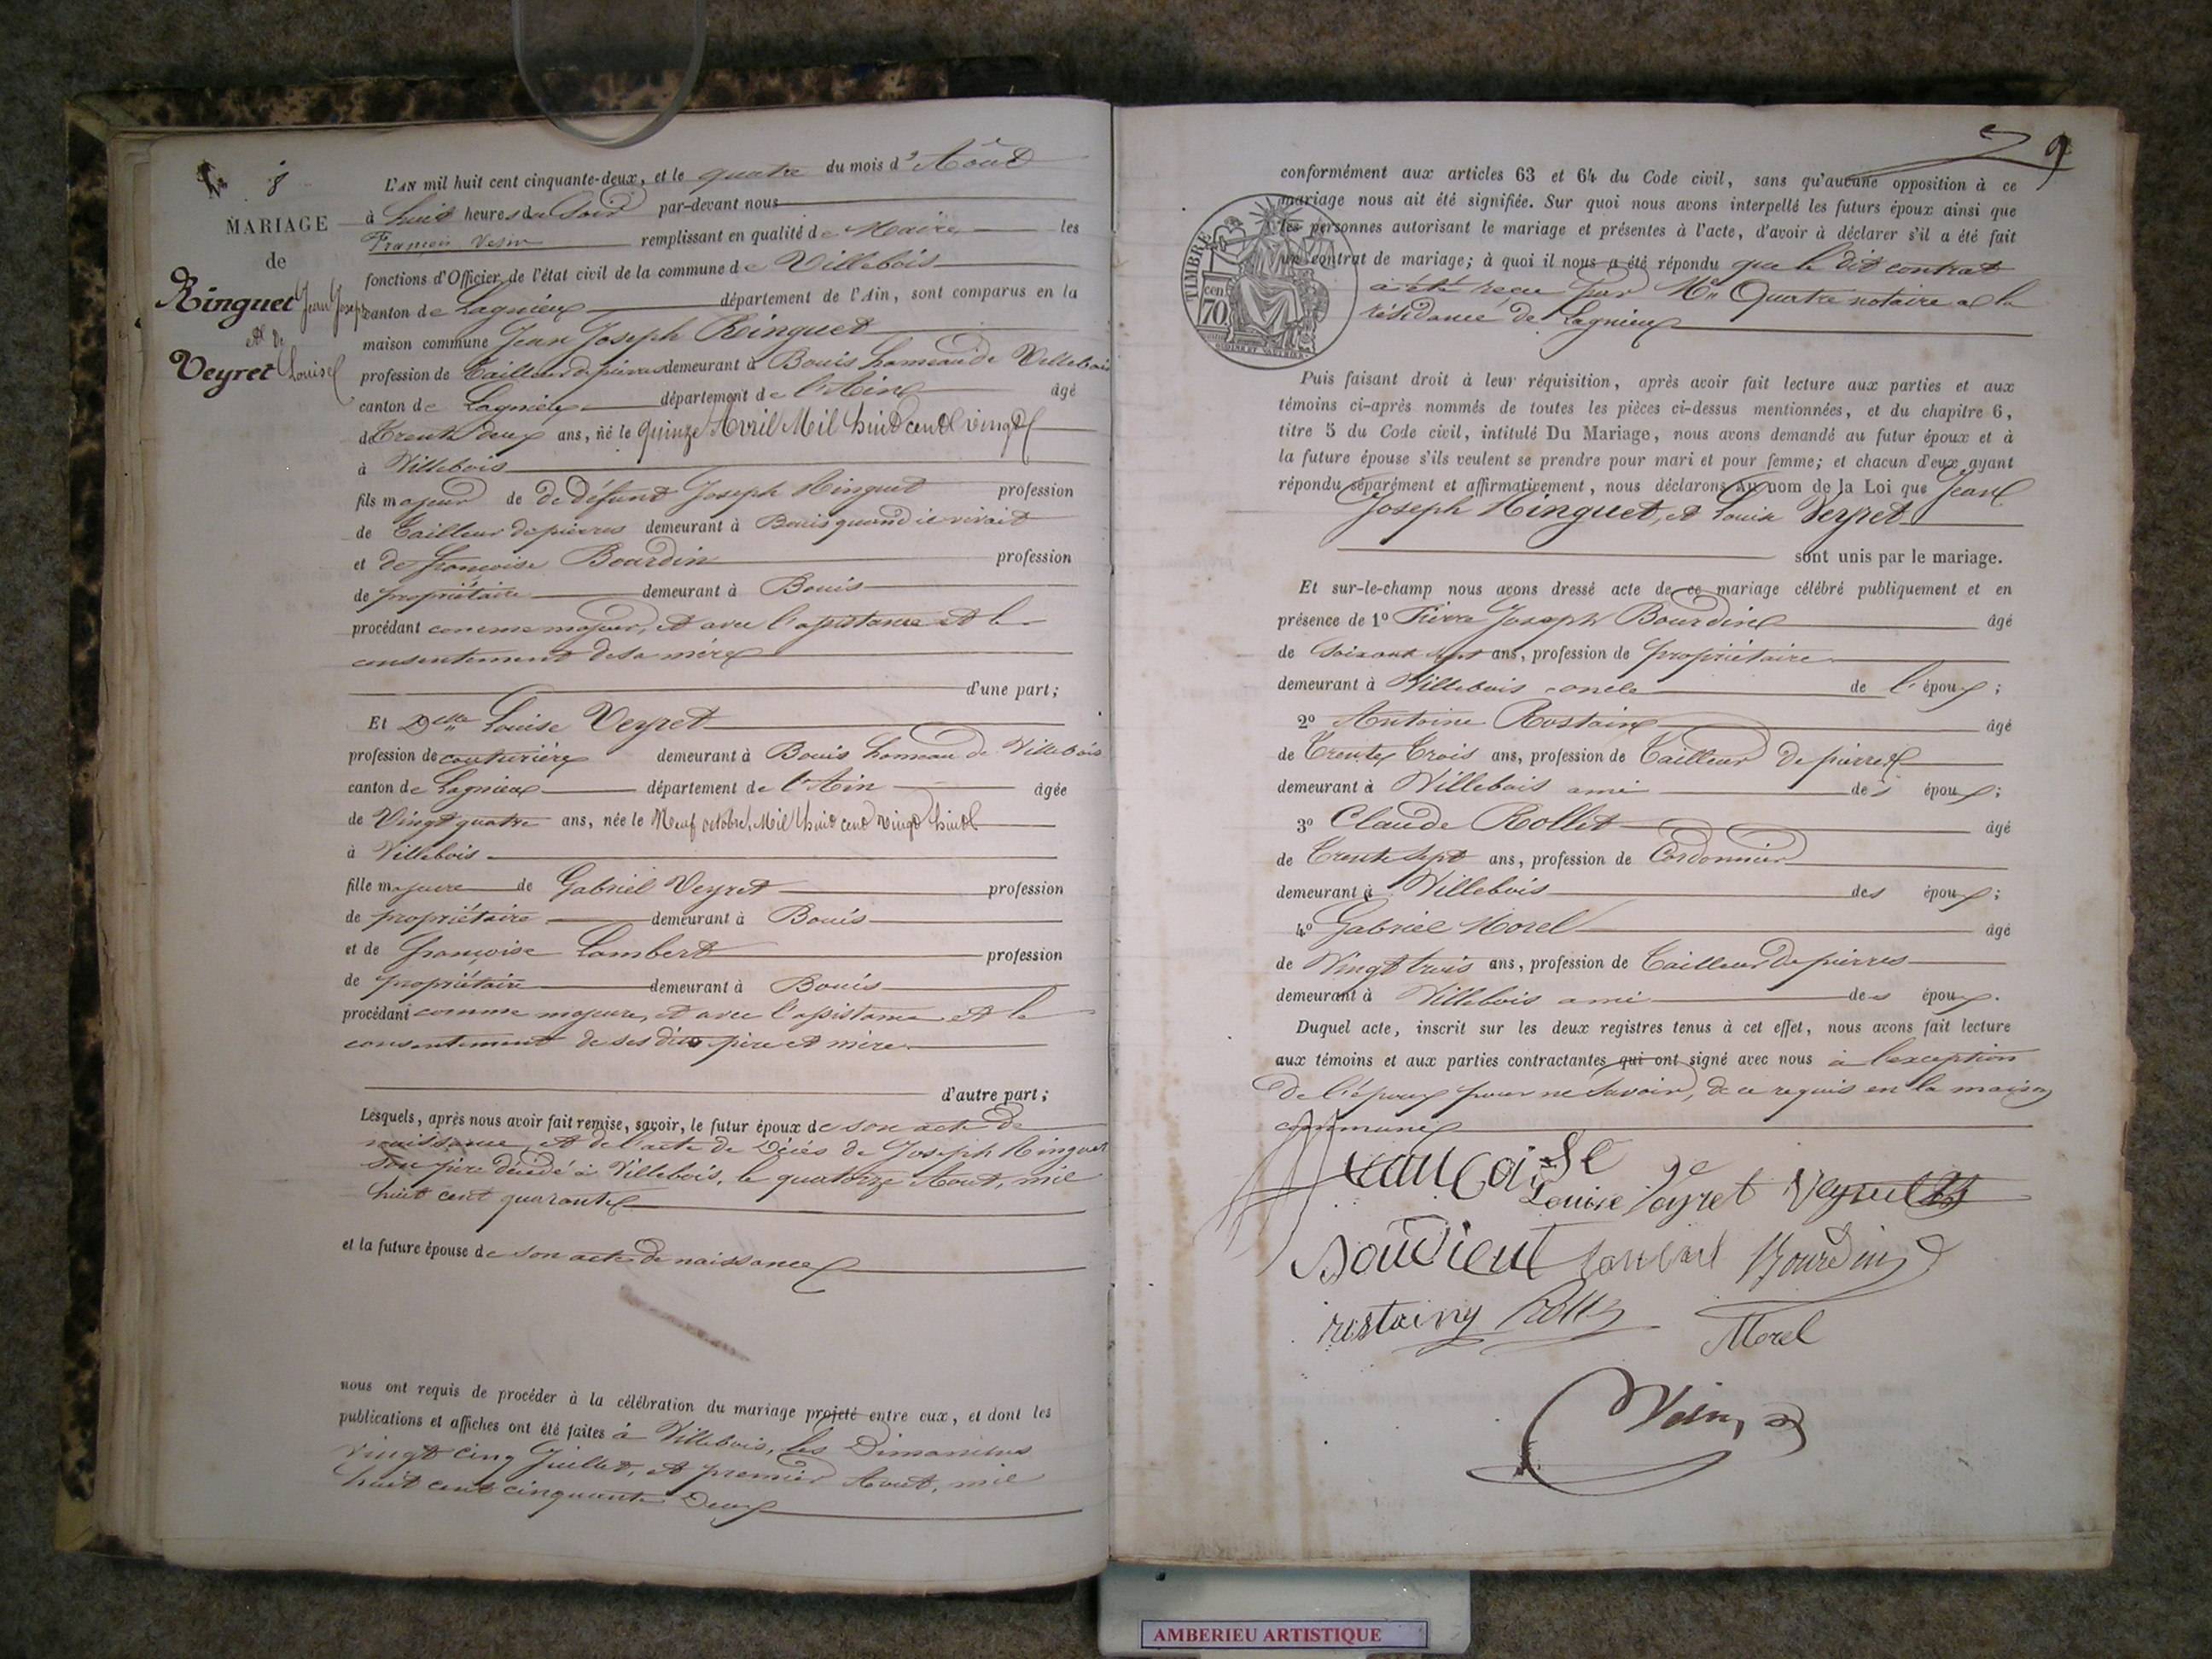 N° 8
MARIAGE
de
Ringuet Jean Joseph
et de
Veyret Louise
L'AN mil huit cent cinquante-deux, et le quatre du mois d'Août
à huit heures du soir par-devant nous
François Vesin remplissant en qualité de Maire les
fonctions d'Officier de l'état civil de la commune de Villebois
canton de Lagnieu département de l'Ain, sont comparus en la
maison commune Jean Joseph Ringuet
profession de Tailleur de pierres demeurant à Bouis hameau de Villebois
canton de Lagnieu département de l'Ain âgé
de Trente deux ans, né le quinze Avril Mil huit cent vingt
à Villebois
fils majeur de de défunt Joseph Ringuet profession
de Tailleur de pierres demeurant à Bouis quand il vivait
et de françoise Bourdin profession
de propriétaire demeurant à Bouis
procédant comme majeur, et avec l'assistance et le
consentement de sa mère
d'une part;
Et Delle Louise Veyret
profession de couturière demeurant à Bouis hameau de Villebois
canton de Lagnieu département de l'Ain âgée
de Vingt quatre ans, née le Neuf octobre, Mil huit cent vingt huit
à Villebois
fille majeure de Gabriel Veyret profession
de propriétaire demeurant à Bouis
et de françoise Lambert profession
de propriétaire demeurant à Bouis
procédant comme majeure, et avec l'assistance et le
consentement de ses dits père et mère
d'autre part;
Lesquels, après nous avoir fait remise, savoir, le futur époux de son acte de
naissance, et de l'acte de Décès de Joseph Ringuet
son père décédé à Villebois, le quatorze Aout, mil
huit cent quarante
et la future épouse de son acte de naissance
nous ont requis de procéder à la célébration du mariage projeté entre eux, et dont les
publications et affiches ont été faites à Villebois, les Dimanches
vingt cinq Juillet, et premier Aout, mil
huit cent cinquante Deux
9
conformément aux articles 63 et 64 du Code civil, sans qu'aucune opposition à ce
mariage nous ait été signifiée. Sur quoi nous avons interpellé les futurs époux ainsi que
les personnes autorisant le mariage et présentes à l'acte, d'avoir à déclarer s'il a été fait
un contrat de mariage; à quoi il nous a été répondu que le dit contrat
a été reçu par Me Quatre notaire a la
résidance de Lagnieu
TIMBRE
70 cen
Puis faisant droit à leur réquisition, après avoir fait lecture aux parties et aux
témoins ci-après nommés de toutes les pièces ci-dessus mentionnées, et du chapitre 6,
titre 5 du Code civil, intitulé Du Mariage, nous avons demandé au futur époux et à
la future épouse s'ils veulent se prendre pour mari et pour femme; et chacun d'eux ayant
répondu séparément et affirmativement, nous déclarons au nom de la Loi que Jean
Joseph Ringuet, et Louise Veyret
sont unis par le mariage.
Et sur-le-champ nous avons dressé acte de ce mariage célébré publiquement et en
présence de 1° Pierre Joseph Bourdin âgé
de Soixante sept ans, profession de propriétaire
demeurant à Villebois oncle de l'époux;
2° Antoine Rostaing âgé
de Trente Trois ans, profession de Tailleur de pierres
demeurant à Villebois ami des époux;
3° Claude Rollet âgé
de Trente Sept ans, profession de Cordonnier
demeurant à Villebois des époux;
4° Gabriel Morel âgé
de Vingt trois ans, profession de Tailleur de pierres
demeurant à Villebois ami des époux.
Duquel acte, inscrit sur les deux registres tenus à cet effet, nous avons fait lecture
aux témoins et aux parties contractantes qui ont signé avec nous à l'exception
de l'époux pour ne savoir, de ce requis en la maison
commune
françoise Louise Veyret Veyret
Lambert Bourdin
rostaing Rollet Morel
Vesin
AMBERIEU ARTISTIQUE